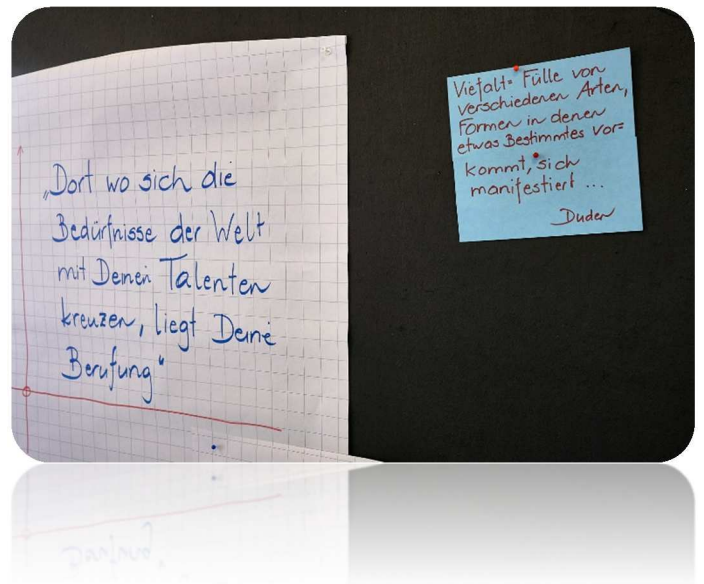 „Dort wo sich die
Bedürfnisse der Welt
mit Deinen Talenten
kreuzen, liegt Deine
Berufung“
Vielfalt = Fülle von
verschiedenen Arten,
Formen in denen
etwas Bestimmtes vor=
kommt, sich
manifestiert ...
Duden